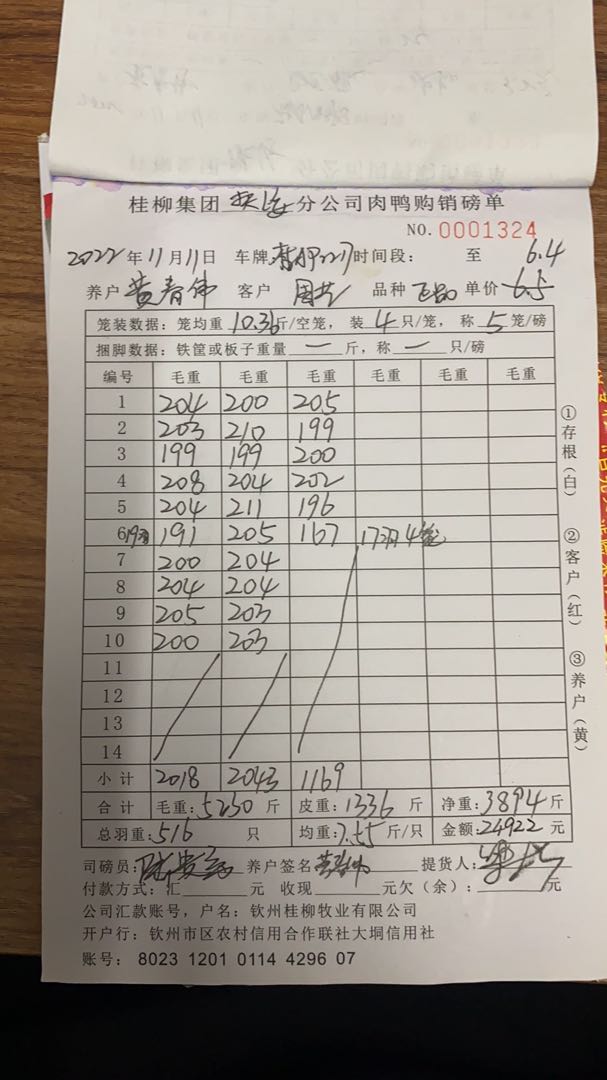 桂柳集团 钦源 分公司肉鸭购销磅单
NO. 0001324
2022 年 11 月 11 日 车牌 217 时间段: 至 6.4
养户 黄春伟 客户 周 品种 正品 单价 6.5
笼装数据: 笼均重 10.36 斤/空笼, 装 4 只/笼, 称 5 笼/磅
捆脚数据: 铁筐或板子重量 — 斤, 称 — 只/磅
编号 毛重 毛重 毛重 毛重 毛重 毛重
1 204 200 205
2 203 210 199
3 199 199 200
4 208 204 202
5 204 211 196
6 19只 191 205 167 17只 4笼
7 200 204
8 204 204
9 205 203
10 200 203
11
12
13
14
小计 2018 2043 1169
合计 毛重: 5230 斤 皮重: 1336 斤 净重: 3894 斤
总羽重: 516 只 均重: 7.55 斤/只 金额: 24922 元
司磅员: 养户签名 黄春伟 提货人:
付款方式: 汇 元 收现 元欠(余): 元
公司汇款账号, 户名: 钦州桂柳牧业有限公司
开户行: 钦州市区农村信用合作联社大垌信用社
账号: 8023 1201 0114 4296 07
①存根(白)
②客户(红)
③养户(黄)